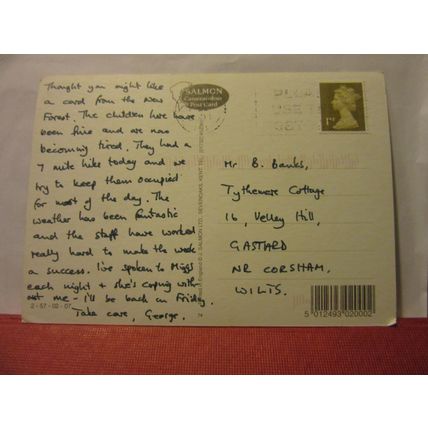 Thought you might like
a card from the New
Forest. The children have
been fine and we now
becoming tired. They had a
7 mile hike today and we
try to keep them occupied
for most of the day. The
weather has been fantastic
and the staff have worked
really hard to make the week
a success. I've spoken to Miggs
each night + she's coping with
out me - I'll be back on Friday.
Take care, George.
2-57-02-07
SALMON
Cameracolour
Post Card
© J. SALMON LTD., SEVENOAKS, KENT
1st
Mr B. Banks,
Tythemere Cottage
16, Velley Hill,
GASTARD
NR CORSHAM,
WILTS.
5 012493 020002